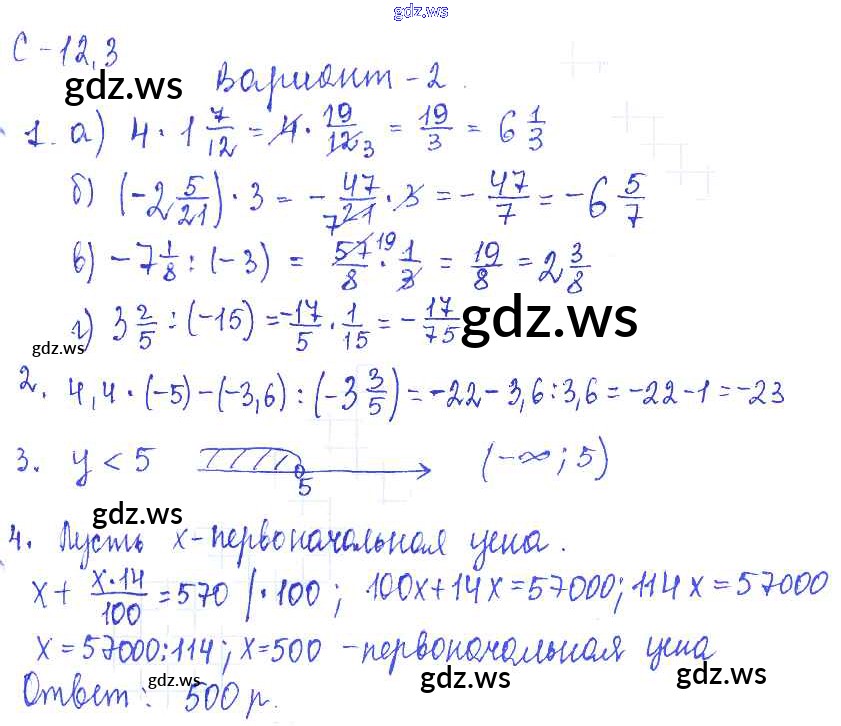 gdz.ws
С-12,3
gdz.ws Вариант-2.
1. а) 4 · 1 7/12 = 4 · 19/12 3 = 19/3 = 6 1/3
б) (-2 5/21) · 3 = - 47/21 7 · 3 = - 47/7 = -6 5/7
в) -7 1/8 : (-3) = 57/8 19 · 1/3 = 19/8 = 2 3/8
г) 3 2/5 : (-15) = -17/5 · 1/15 = - 17/75 gdz.ws
gdz.ws
2. 4,4 · (-5) - (-3,6) : (-3 3/5) = -22 - 3,6 : 3,6 = -22 - 1 = -23
3. y < 5 5 (-∞; 5)
gdz.ws
4. Пусть x - первоначальная цена.
x + x·14/100 = 570 | · 100; 100x + 14x = 57000; 114x = 57000
gdz.ws gdz.ws
x = 57000 : 114; x = 500 - первоначальная цена
Ответ: 500 р.
gdz.ws gdz.ws gdz.ws